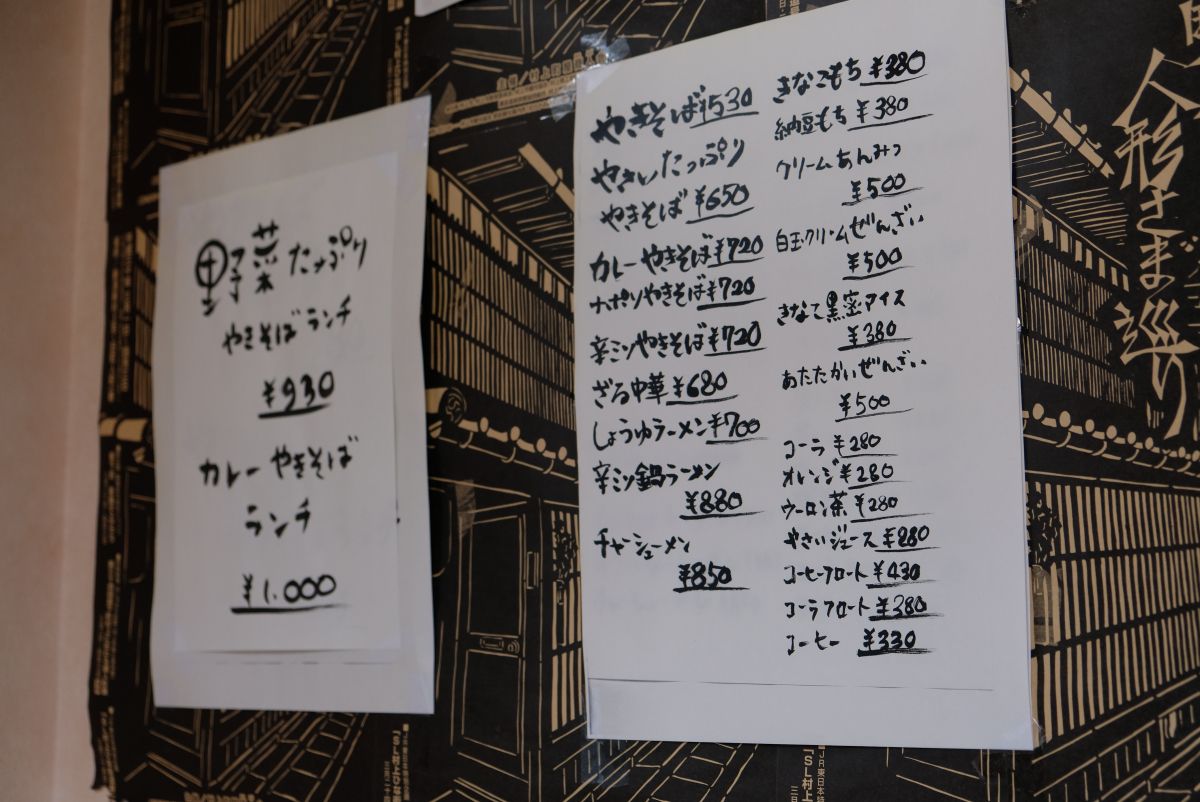 野菜たっぷり
やきそばランチ
¥930
カレーやきそば
ランチ
¥1.000
やきそば¥530
やさいたっぷり
やきそば¥650
カレーやきそば¥720
ナポリやきそば¥720
辛ミソやきそば¥720
ざる中華¥680
しょうゆラーメン¥700
辛ミソ鍋ラーメン
¥880
チャーシューメン
¥850
きなこもち¥380
納豆もち¥380
クリームあんみつ
¥500
白玉クリームぜんざい
¥500
きなこ黒蜜アイス
¥380
あたたかいぜんざい
¥500
コーラ¥280
オレンジ¥280
ウーロン茶¥280
やさいジュース¥280
コーヒーフロート¥430
コーラフロート¥380
コーヒー ¥330
人形さま巡り
JR東日本
「SL村上